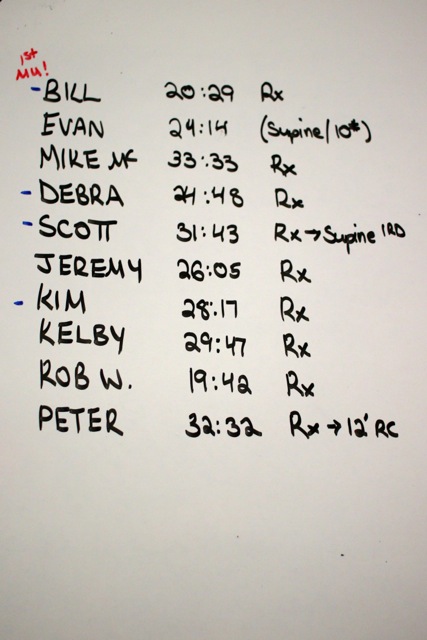 1st
MU!
- BILL 20:29 Rx
EVAN 24:14 (Supine/10#)
MIKE MF 33:33 Rx
- DEBRA 24:48 Rx
- SCOTT 31:43 Rx → Supine 1RD
JEREMY 26:05 Rx
- KIM 28:17 Rx
KELBY 29:47 Rx
ROB W. 19:42 Rx
PETER 32:32 Rx → 12' RC